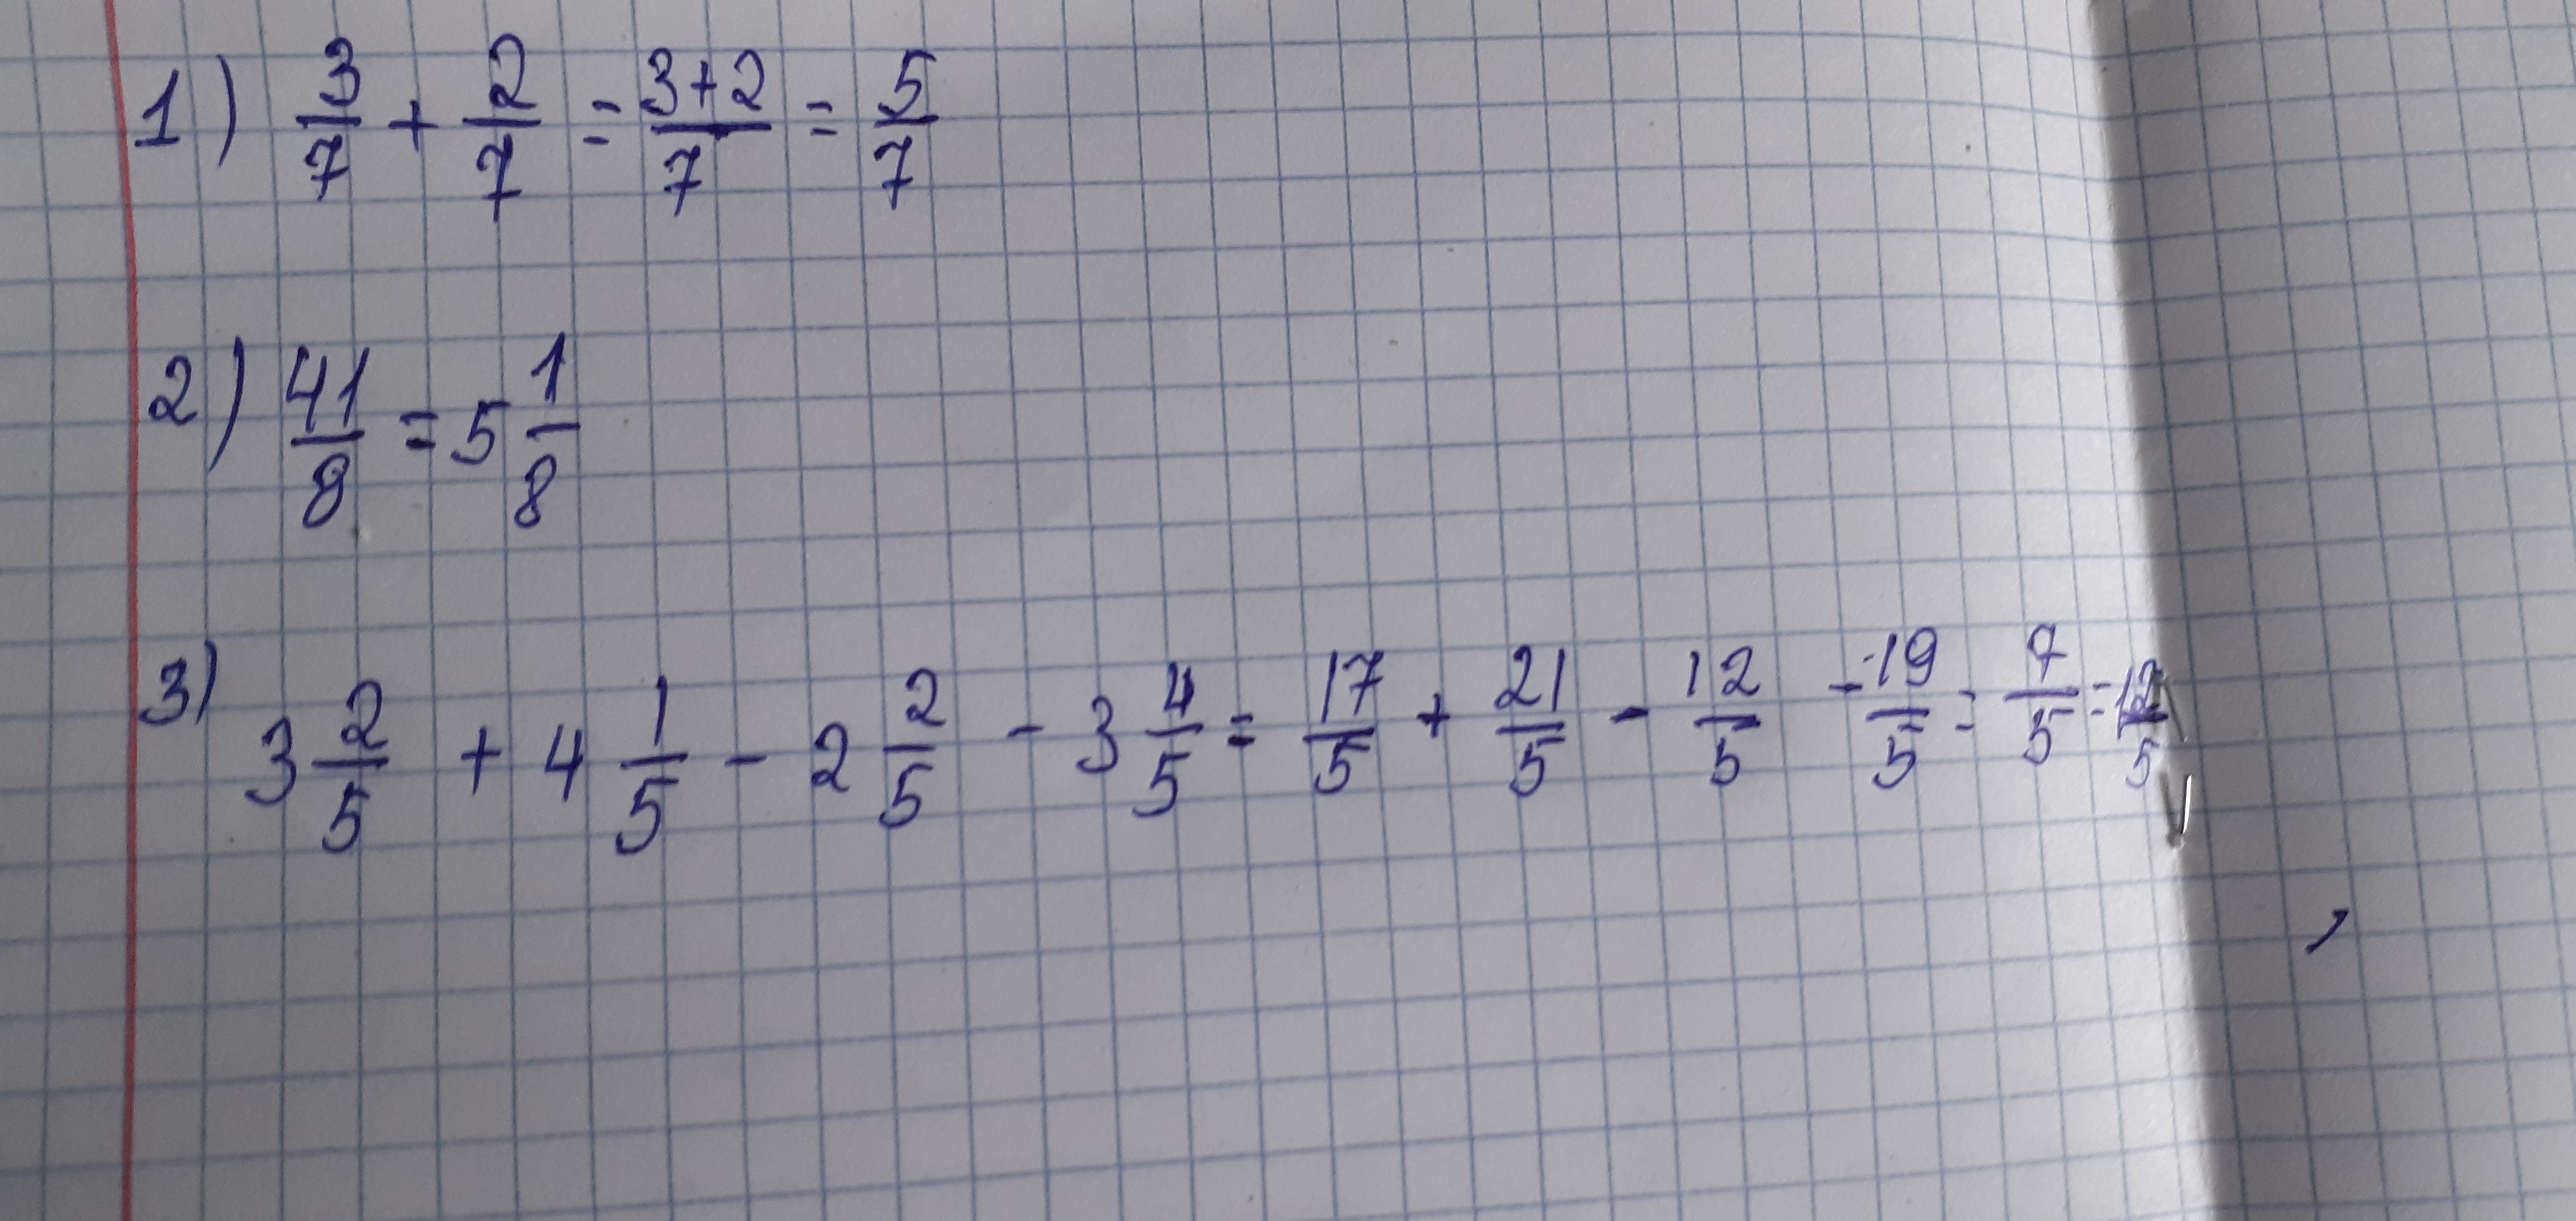 1) 3/7 + 2/7 = 3+2/7 = 5/7
2) 41/8 = 5 1/8
3) 3 2/5 + 4 1/5 - 2 2/5 - 3 4/5 = 17/5 + 21/5 - 12/5 - 19/5 = 7/5 =